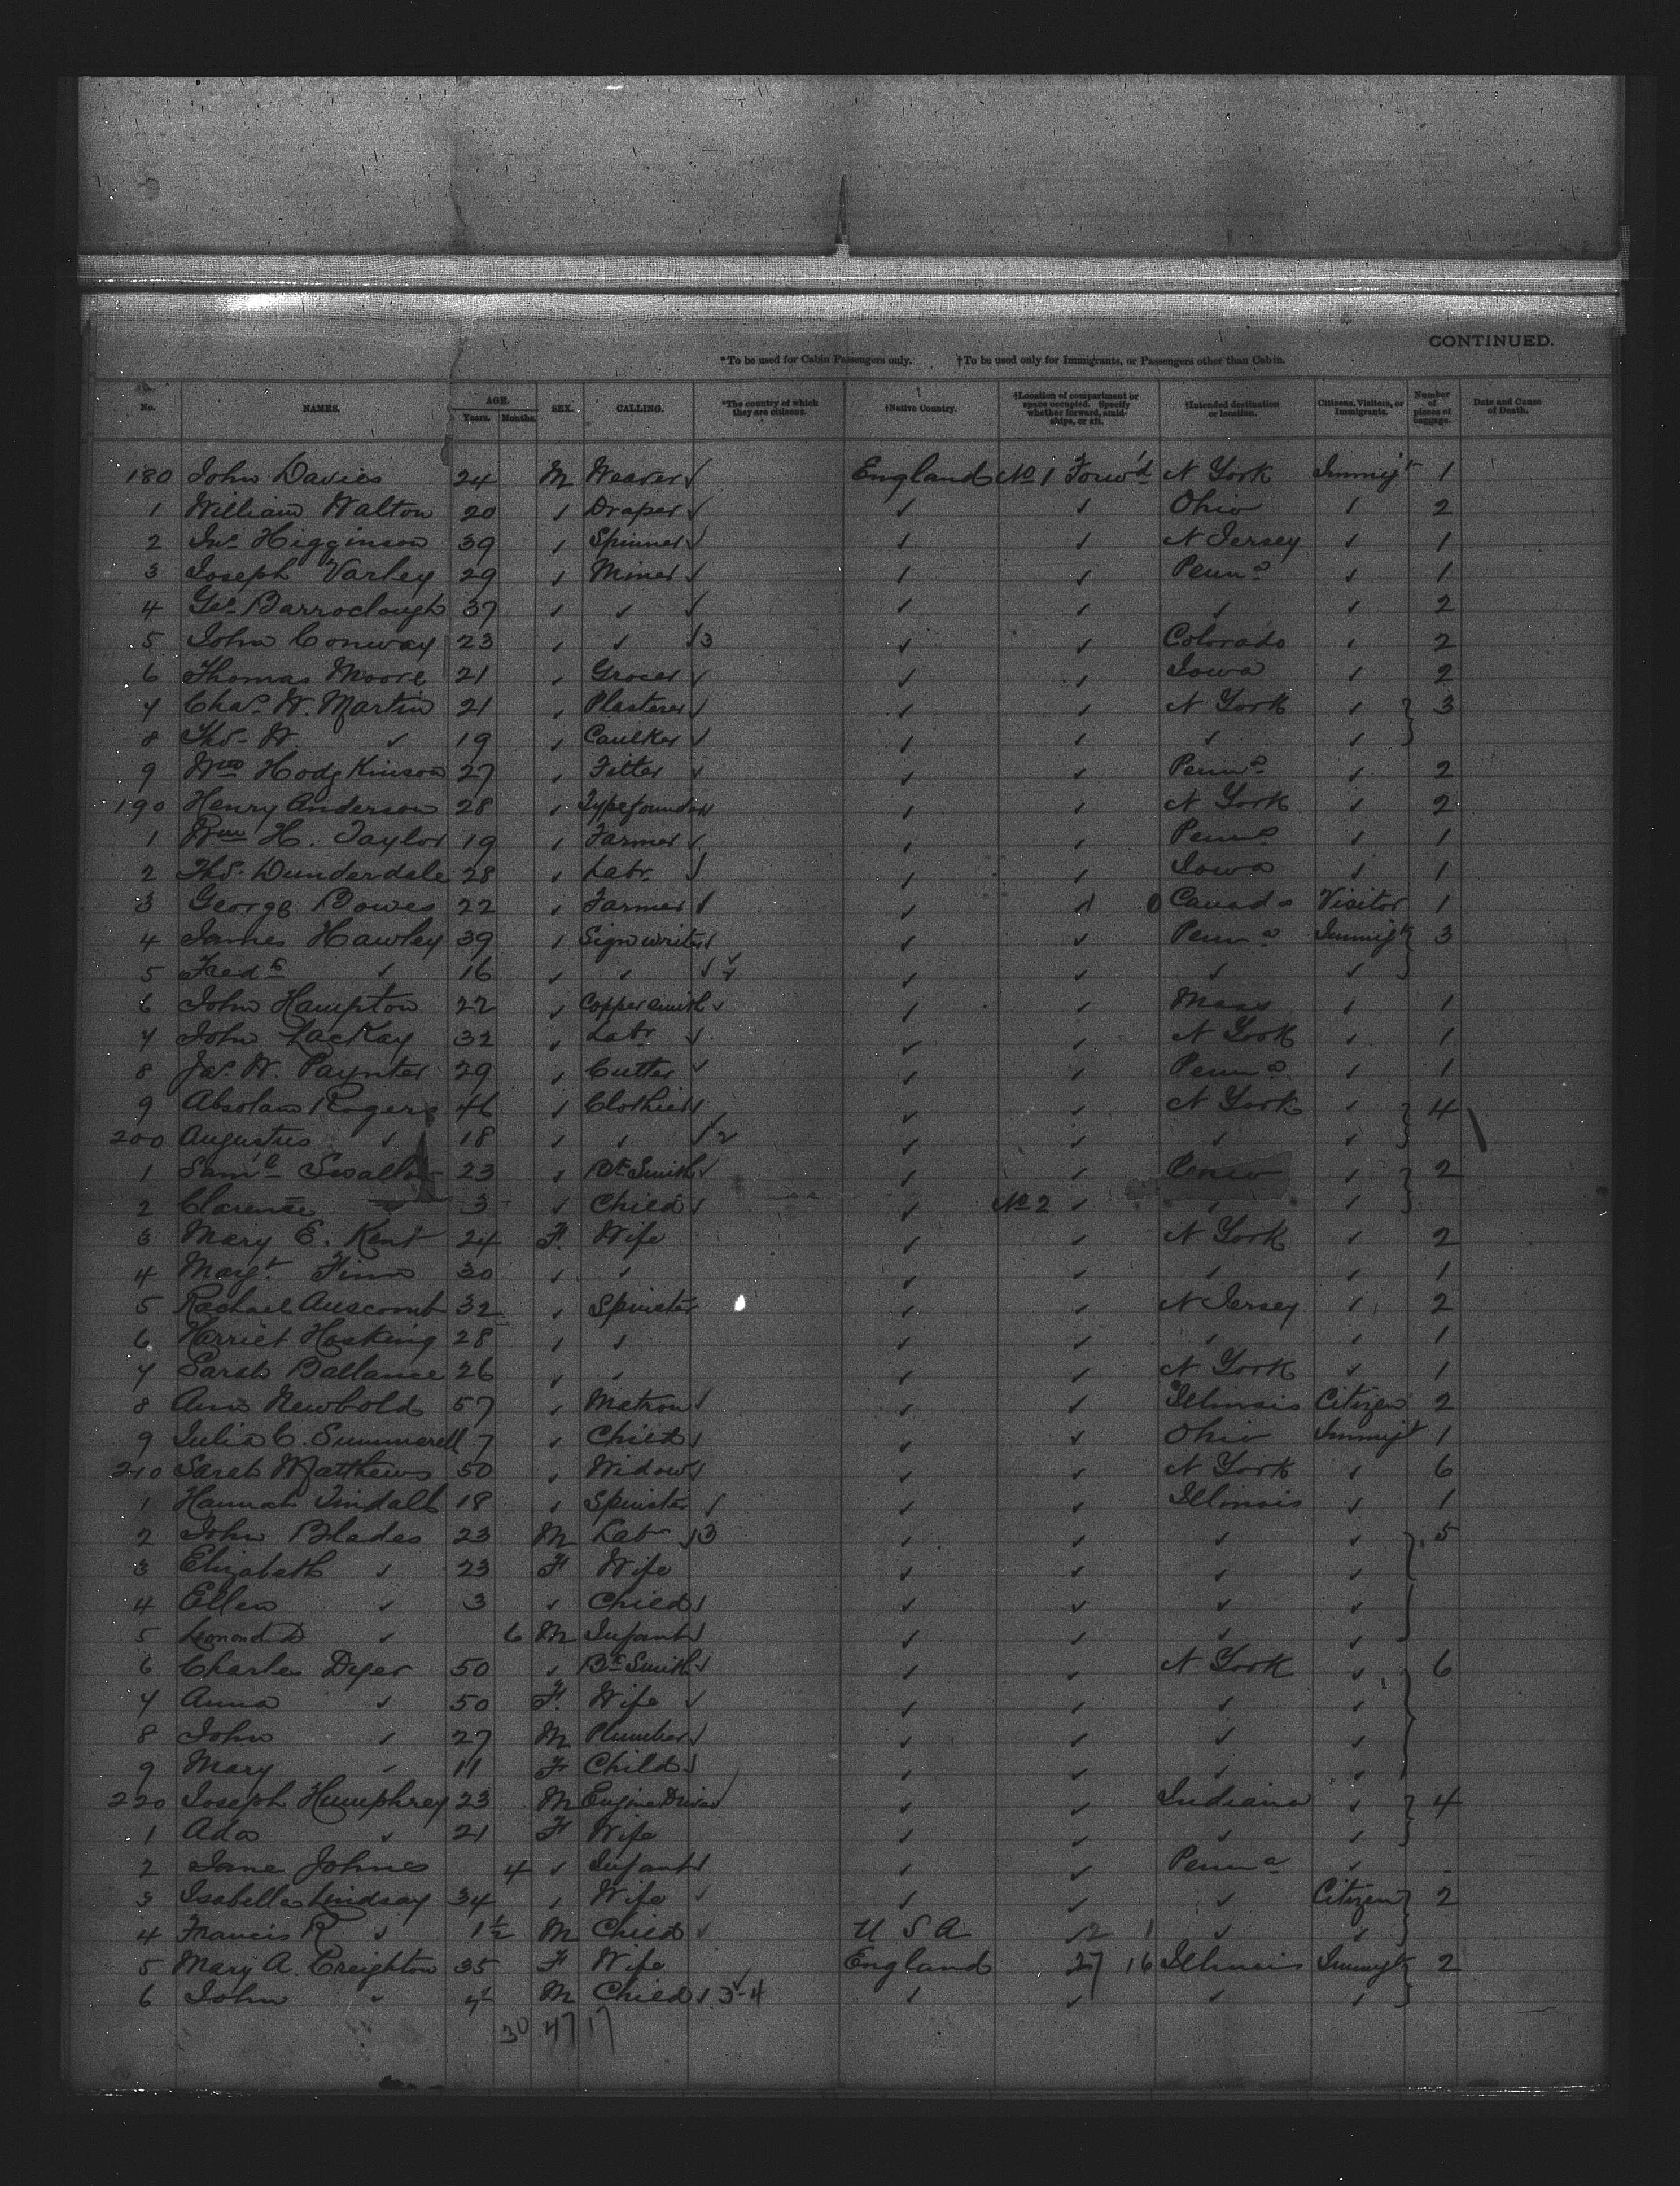 CONTINUED.
*To be used for Cabin Passengers only. †To be used only for Immigrants, or Passengers other than Cabin.
No. NAMES. AGE. Years. Months. SEX. CALLING. *The country of which they are citizens. †Native Country. †Location of compartment or space occupied. Specify whether forward, amidships, or aft. †Intended destination or location. Citizens, Visitors, or Immigrants. Number of pieces of baggage. Date and Cause of Death.
180 John Davies 24 M Weaver ✓ England No 1 Forw'd N York Immigt 1
1 William Walton 20 ✓ Draper ✓ ✓ ✓ Ohio ✓ 2
2 Jno Higginson 39 ✓ Spinner ✓ ✓ ✓ N Jersey ✓ 1
3 Joseph Varley 29 ✓ Miner ✓ ✓ ✓ Penna ✓ 1
4 Geo Barroclough 37 ✓ ✓ ✓ ✓ ✓ ✓ ✓ 2
5 John Conway 23 ✓ ✓ ✓3 ✓ ✓ Colorado ✓ 2
6 Thomas Moore 21 ✓ Grocer ✓ ✓ ✓ Iowa ✓ 2
7 Chas W. Martin 21 ✓ Plasterer ✓ ✓ ✓ N York ✓ } 3
8 Thos W. ✓ 19 ✓ Caulker ✓ ✓ ✓ ✓ ✓
9 Wm Hodgkinson 27 ✓ Fitter ✓ ✓ ✓ Penna ✓ 2
190 Henry Anderson 28 ✓ Typefounder ✓ ✓ ✓ N York ✓ 2
1 Wm H. Taylor 19 ✓ Farmer ✓ ✓ ✓ Penna ✓ 1
2 Thos Dunderdale 28 ✓ Labr ✓ ✓ ✓ Iowa ✓ 1
3 George Bowes 22 ✓ Farmer ✓ ✓ ✓ 0 Canada Visitor 1
4 James Hawley 39 ✓ Sign writer ✓ ✓ ✓ Penna Immigt } 3
5 Fredk ✓ 16 ✓ ✓ ✓ ✓ ✓ ✓ ✓
6 John Hampton 22 ✓ Coppersmith ✓ ✓ ✓ Mass ✓ 1
7 John Lackay 32 ✓ Labr ✓ ✓ ✓ N York ✓ 1
8 Jas. W. Paynter 29 ✓ Cutter ✓ ✓ ✓ Penna ✓ 1
9 Absolam Rogers 46 ✓ Clothier ✓ ✓ ✓ N York ✓ } 4
200 Augustus ✓ 18 ✓ ✓ ✓2 ✓ ✓ ✓ ✓
1 Saml Swallow 23 ✓ Bk Smith ✓ ✓ ✓ ✓ } 2
2 Clarence 3 ✓ Child ✓ ✓ No 2 ✓ ✓ ✓
3 Mary E. Kent 24 F. Wife ✓ ✓ N York ✓ 2
4 Margt Finn 30 ✓ ✓ ✓ ✓ ✓ ✓ 1
5 Rachael Auscomb 32 ✓ Spinster ✓ ✓ N Jersey ✓ 2
6 Harriet Hosking 28 ✓ ✓ ✓ ✓ ✓ ✓ 1
7 Sarah Ballance 26 ✓ ✓ ✓ ✓ N York ✓ 1
8 Ann Newbold 57 ✓ Matron ✓ ✓ ✓ Illinois Citizen 2
9 Julia C. Summerell 7 ✓ Child ✓ ✓ ✓ Ohio Immigt 1
210 Sarah Matthews 50 ✓ Widow ✓ ✓ ✓ N York ✓ 6
1 Hannah Tindall 18 ✓ Spinster ✓ ✓ ✓ Illinois ✓ 1
2 John Blades 23 M Labr ✓3 ✓ ✓ ✓ ✓ } 5
3 Elizabeth ✓ 23 F Wife ✓ ✓ ✓ ✓
4 Ellen ✓ 3 ✓ Child ✓ ✓ ✓ ✓ ✓
5 Leonond D ✓ 6 M Infant ✓ ✓ ✓ ✓ ✓
6 Charles Dyer 50 ✓ Bk Smith ✓ ✓ ✓ N York ✓ } 6
7 Anna ✓ 50 F. Wife ✓ ✓ ✓ ✓ ✓
8 John ✓ 27 M Plumber ✓ ✓ ✓ ✓ ✓
9 Mary ✓ 11 F Child ✓ ✓ ✓ ✓ ✓
220 Joseph Humphrey 23 M Engine Driver ✓ ✓ ✓ Indiana ✓ } 4
1 Ada ✓ 21 F Wife ✓ ✓ ✓ ✓
2 Jane Johnes 4 ✓ Infant ✓ ✓ ✓ Penna ✓ -
3 Isabella Lindsay 34 ✓ Wife ✓ ✓ ✓ ✓ Citizen } 2
4 Francis R ✓ 1½ M Child ✓ U S A 2 1 ✓ ✓
5 Mary A. Creighton 35 F Wife England 27 16 Illinois Immigt } 2
6 John ✓ 4 M Child ✓ 3-4 ✓ ✓ ✓ ✓
30 47 17